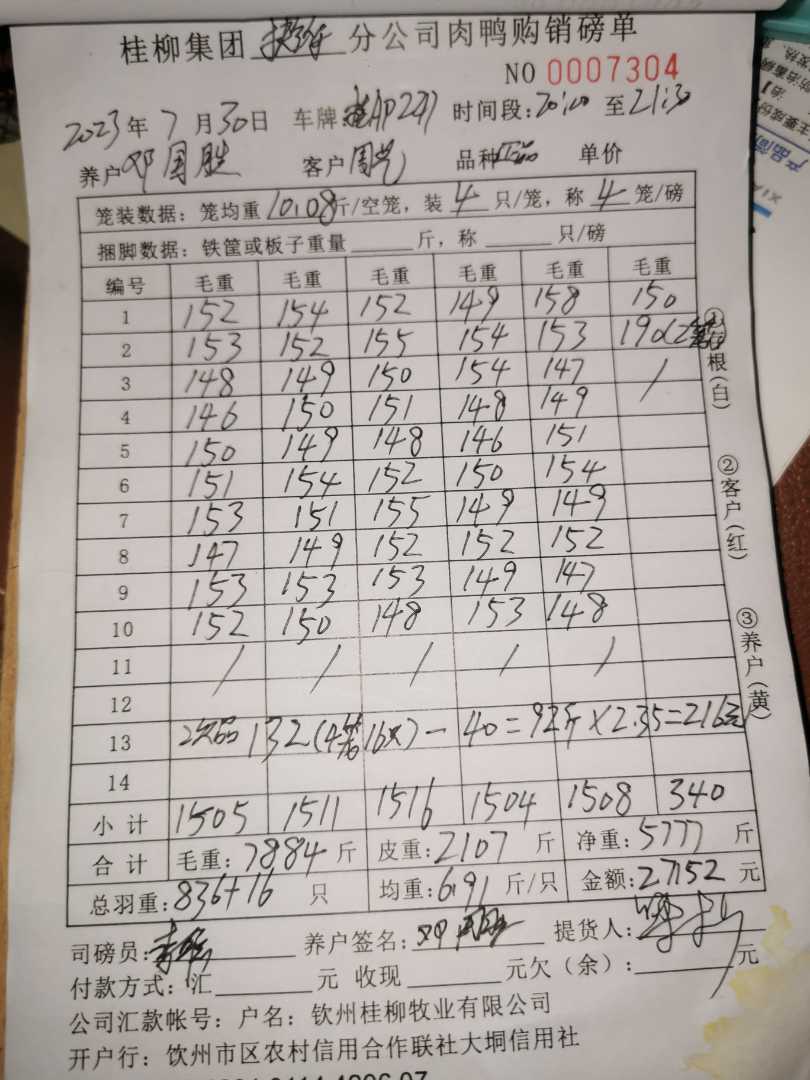 桂柳集团 分公司肉鸭购销磅单
NO 0007304
2023年7月30日 车牌 时间段:20:00至21:30
养户邓国胜 客户周 品种正品 单价
笼装数据:笼均重10.08斤/空笼,装4只/笼,称4笼/磅
捆脚数据:铁筐或板子重量 斤,称 只/磅
编号 毛重 毛重 毛重 毛重 毛重 毛重
1 152 154 152 149 158 150
2 153 152 155 154 153 190(2笼)
3 148 149 150 154 147 /
4 146 150 151 148 149
5 150 149 148 146 151
6 151 154 152 150 154
7 153 151 155 149 149
8 147 149 152 152 152
9 153 153 153 149 147
10 152 150 148 153 148
11 / / / / /
12
13 次品132(4笼16只)-40=92斤×2.35=216元
14
小计 1505 1511 1516 1504 1508 340
合计 毛重:7884斤 皮重:2107斤 净重:5777斤
总羽重:836+16只 均重:6.91斤/只 金额:27152元
司磅员: 养户签名:邓国胜 提货人:
付款方式:汇 元 收现 元欠(余): 元
公司汇款帐号:户名:钦州桂柳牧业有限公司
开户行:钦州市区农村信用合作联社大垌信用社
①存根(白)
②客户(红)
③养户(黄)